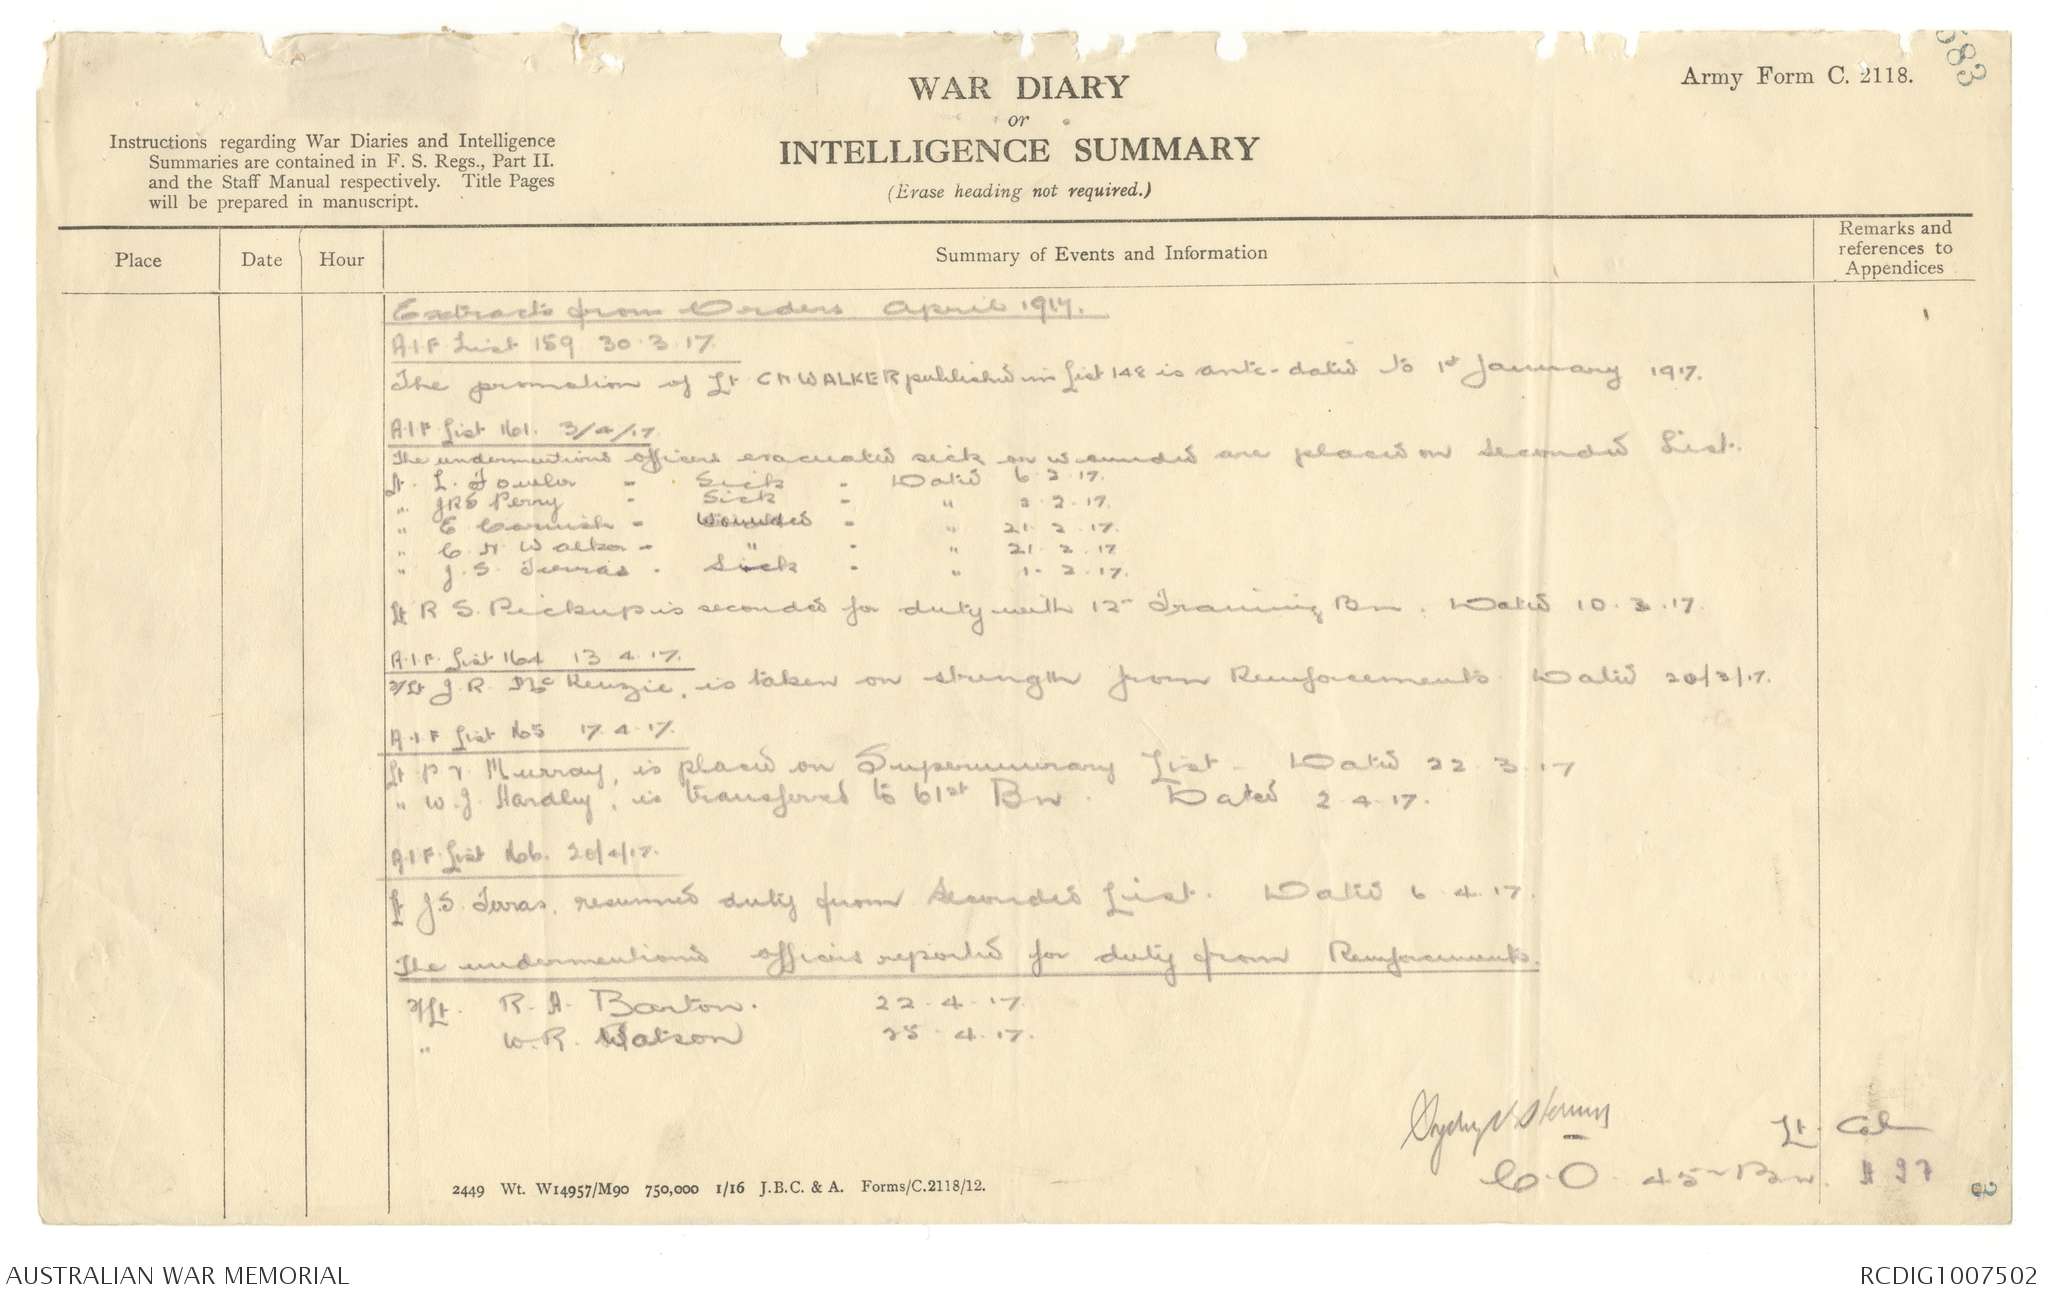 583
Army Form C. 2118.
WAR DIARY
or
INTELLIGENCE SUMMARY
(Erase heading not required.)
Instructions regarding War Diaries and Intelligence
Summaries are contained in F. S. Regs., Part II.
and the Staff Manual respectively. Title Pages
will be prepared in manuscript.
Place Date Hour Summary of Events and Information Remarks and references to Appendices
Extracts from Orders April 1917.
A.I.F List 159 30.3.17.
The promotion of Lt C N WALKER published in List 148 is ante-dated to 1st January 1917.
A.I.F List 161. 3/4/17.
The undermentioned officers evacuated sick or wounded are placed on Seconded List.
Lt. L. Fowler - Sick - Dated 6.2.17.
" JRS Perry - Sick - " 2.2.17.
" E Cornish - Wounded - " 21.2.17.
" C N Walker - " - " 21.2.17
" J. S. Terras - Sick - " 1.2.17.
Lt R S. Pickup is seconded for duty with 12th Training Bn. Dated 10.3.17.
A.I.F. List 164 13.4.17.
2/Lt J. R. McKenzie, is taken on strength from Reinforcements. Dated 20/3/17.
A.I.F List 165 17.4.17.
Lt P V Murray, is placed on Supernumerary List - Dated 22.3.17
" W. J. Hardly, is transferred to 61st Bn. Dated 2.4.17.
A.I.F. List 166. 20/4/17.
Lt J.S. Terras, resumed duty from Seconded List. Dated 6.4.17.
The undermentioned officers reported for duty from Reinforcements.
2/Lt. R. A. Barton. 22.4.17.
" W. R. Watson 25.4.17.
Lt. Col
C.O. 45th Bn.
2449 Wt. W14957/M90 750,000 1/16 J.B.C. & A. Forms/C.2118/12.
AUSTRALIAN WAR MEMORIAL
RCDIG1007502